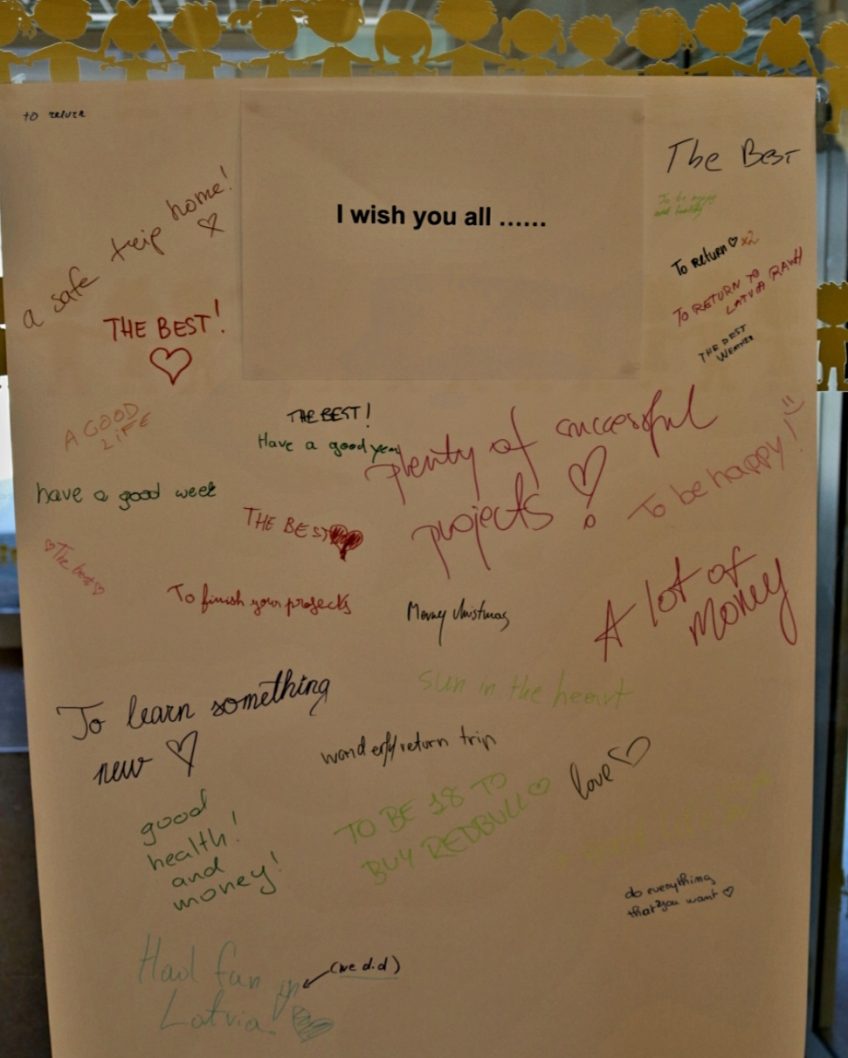 to return
I wish you all ......
The Best
a safe trip home!
To be happy
and healthy
To return x2
TO RETURN TO
LATVIA
THE BEST
WEATHER
THE BEST!
A GOOD
LIFE
THE BEST!
Have a good year
plenty of successful
projects!
To be happy!
have a good week
THE BEST
The best
To finish your projects
Merry christmas
A lot of
money
sun in the heart
To learn something
new
return trip
love
TO BE 18 TO
BUY REDBULL
good
health!
and
money!
do everything
that you want
Had fun in
Latvia!
(we did)